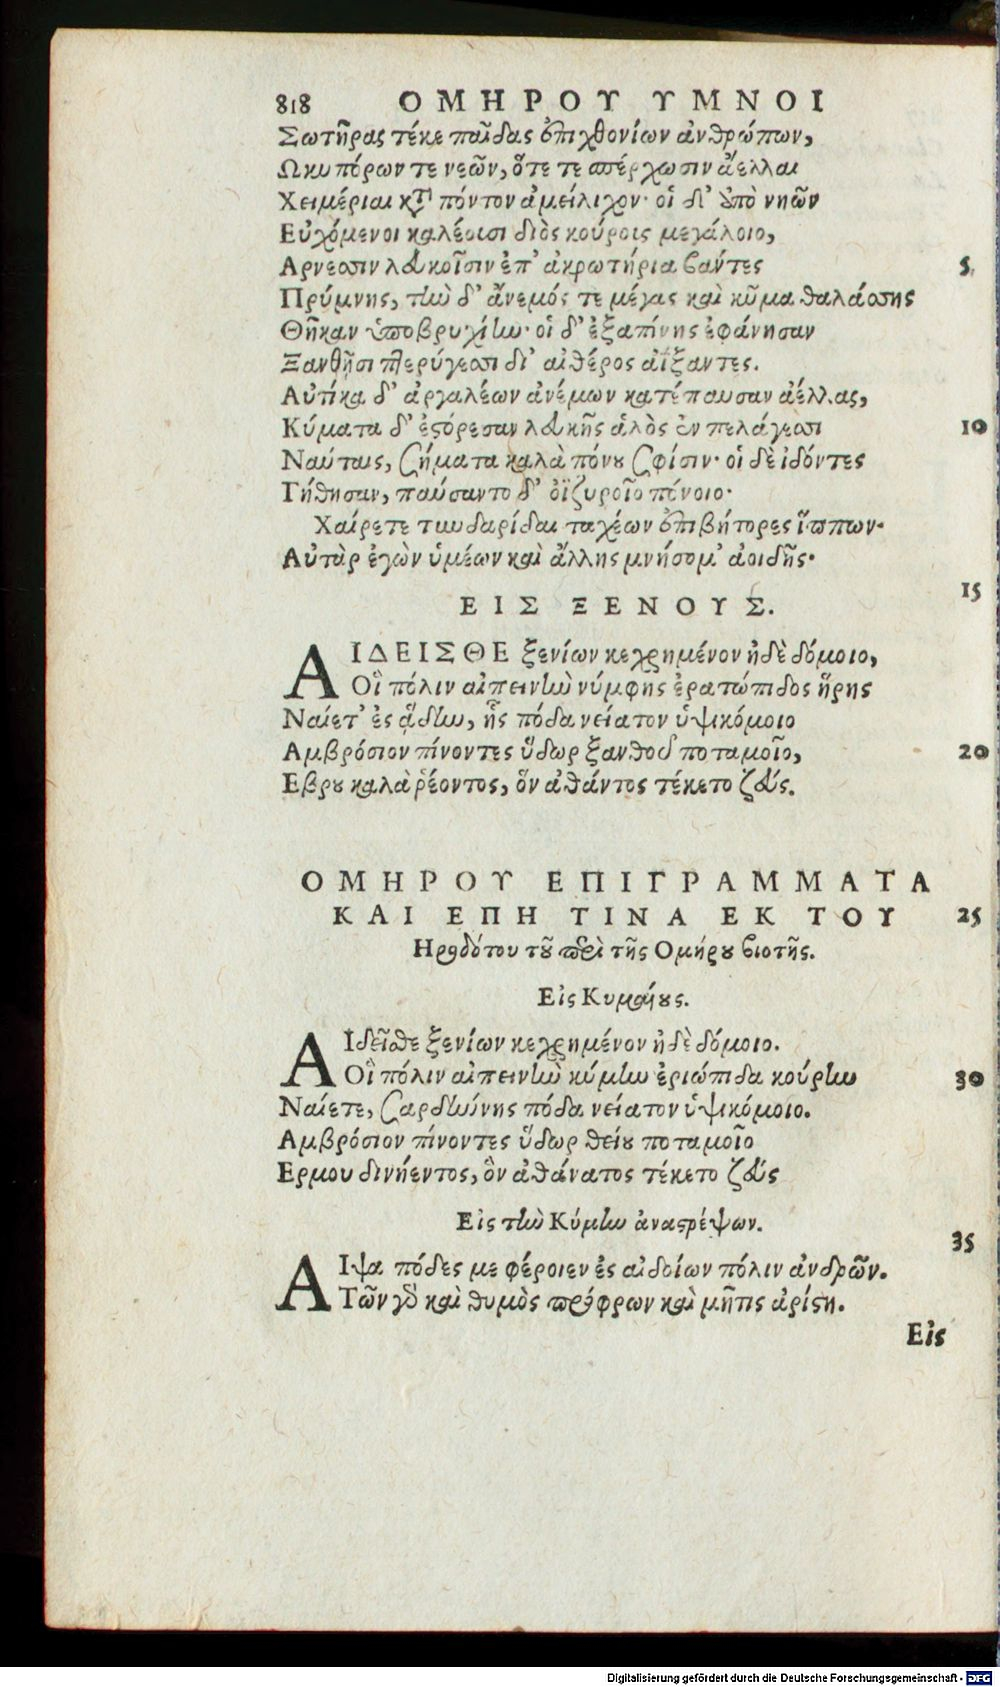 818 ΟΜΗΡΟΥ ΥΜΝΟΙ
Σωτῆρας τέκε παῖδας ἐπιχθονίων ἀνθρώπων,
Ωκυπόρων τε νεῶν, ὅτε τε σπέρχωσιν ἄελλαι
Χειμέριαι κατὰ πόντον ἀμείλιχον· οἱ δ' ἀπὸ νηῶν
Εὐχόμενοι καλέουσι διὸς κούροις μεγάλοιο,
Αρνεσσιν λευκοῖσιν ἐπ' ἀκρωτήρια βαντες 5
Πρύμνης, τὴν δ' ἄνεμός τε μέγας καὶ κῦμα θαλάσσης
Θῆκαν ὑποβρυχίην· οἱ δ' ἐξαπίνης ἐφάνησαν
Ξανθῇσι πτερύγεσσι δι' αἰθέρος ἀΐξαντες.
Αὐτίκα δ' ἀργαλέων ἀνέμων κατέπαυσαν ἀέλλας,
Κύματα δ' ἐστόρεσαν λευκῆς ἁλὸς ἐν πελάγεσσι 10
Ναύταις, σήματα καλὰ πόνου σφίσιν· οἱ δὲ ἰδόντες
Γήθησαν, παύσαντο δ' ὀϊζυροῖο πόνοιο·
Χαίρετε τυνδαρίδαι ταχέων ἐπιβήτορες ἵππων·
Αὐτὰρ ἐγὼν ὑμέων καὶ ἄλλης μνήσομ' ἀοιδῆς·
ΕΙΣ ΞΕΝΟΥΣ. 15
ΑΙΔΕΙΣΘΕ ξενίων κεχρημένον ἠδὲ δόμοιο,
Οἳ πόλιν αἰπεινὴν νύμφης ἐρατώπιδος ἥρης
Ναίετ' ἐς ᾅδην, ἧς πόδα νείατον ὑψικόμοιο
Αμβρόσιον πίνοντες ὕδωρ ξανθοῦ ποταμοῖο, 20
Εβρου καλὰ ῥέοντος, ὅν ἀθάντος τέκετο ζεύς.
ΟΜΗΡΟΥ ΕΠΙΓΡΑΜΜΑΤΑ
ΚΑΙ ΕΠΗ ΤΙΝΑ ΕΚ ΤΟΥ 25
Ηροδότου τοῦ περὶ τῆς Ομήρου βιοτῆς.
Εἰς Κυμαίους.
ΑΙδεῖσθε ξενίων κεχρημένον ἠδὲ δόμοιο.
Οἳ πόλιν αἰπεινὴν κύμην ἐριώπιδα κούρην 30
Ναίετε, Σαρδήνης πόδα νείατον ὑψικόμοιο.
Αμβρόσιον πίνοντες ὕδωρ θείου ποταμοῖο
Ερμου δινήεντος, ὃν ἀθάνατος τέκετο ζεύς
Εἰς τὴν Κύμην ἀναστρέψων. 35
ΑΙψα πόδες με φέροιεν ἐς αἰδοίων πόλιν ἀνδρῶν.
Τῶν γὰρ καὶ θυμὸς πρόφρων καὶ μῆτις ἀρίστη.
Εἰς
Digitalisierung gefördert durch die Deutsche Forschungsgemeinschaft - DFG